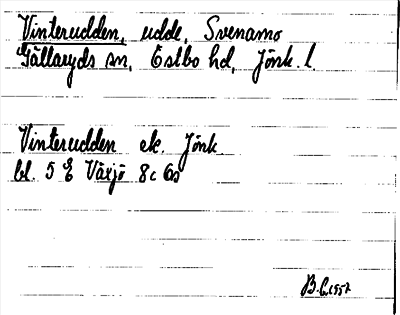 Vinterudden, udde, Svenamo
Gällaryds sn, Östbo hd, Jönk. l.
Vinterudden ek. Jönk.
bl. 5 E Växjö 8c
B.L. 1957